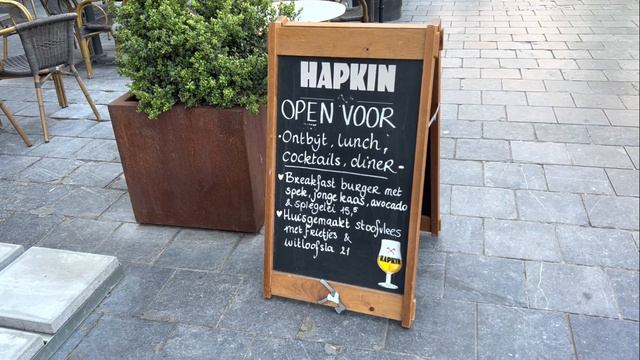 HAPKIN
OPEN VOOR
• Ontbijt, lunch,
cocktails, diner -
♥ Breakfast burger met
spek, jonge kaas, avocado
& spiegelei 15,5
♥ Huisgemaakt stoofvlees
met frietjes &
witloofsla 21
HAPKIN